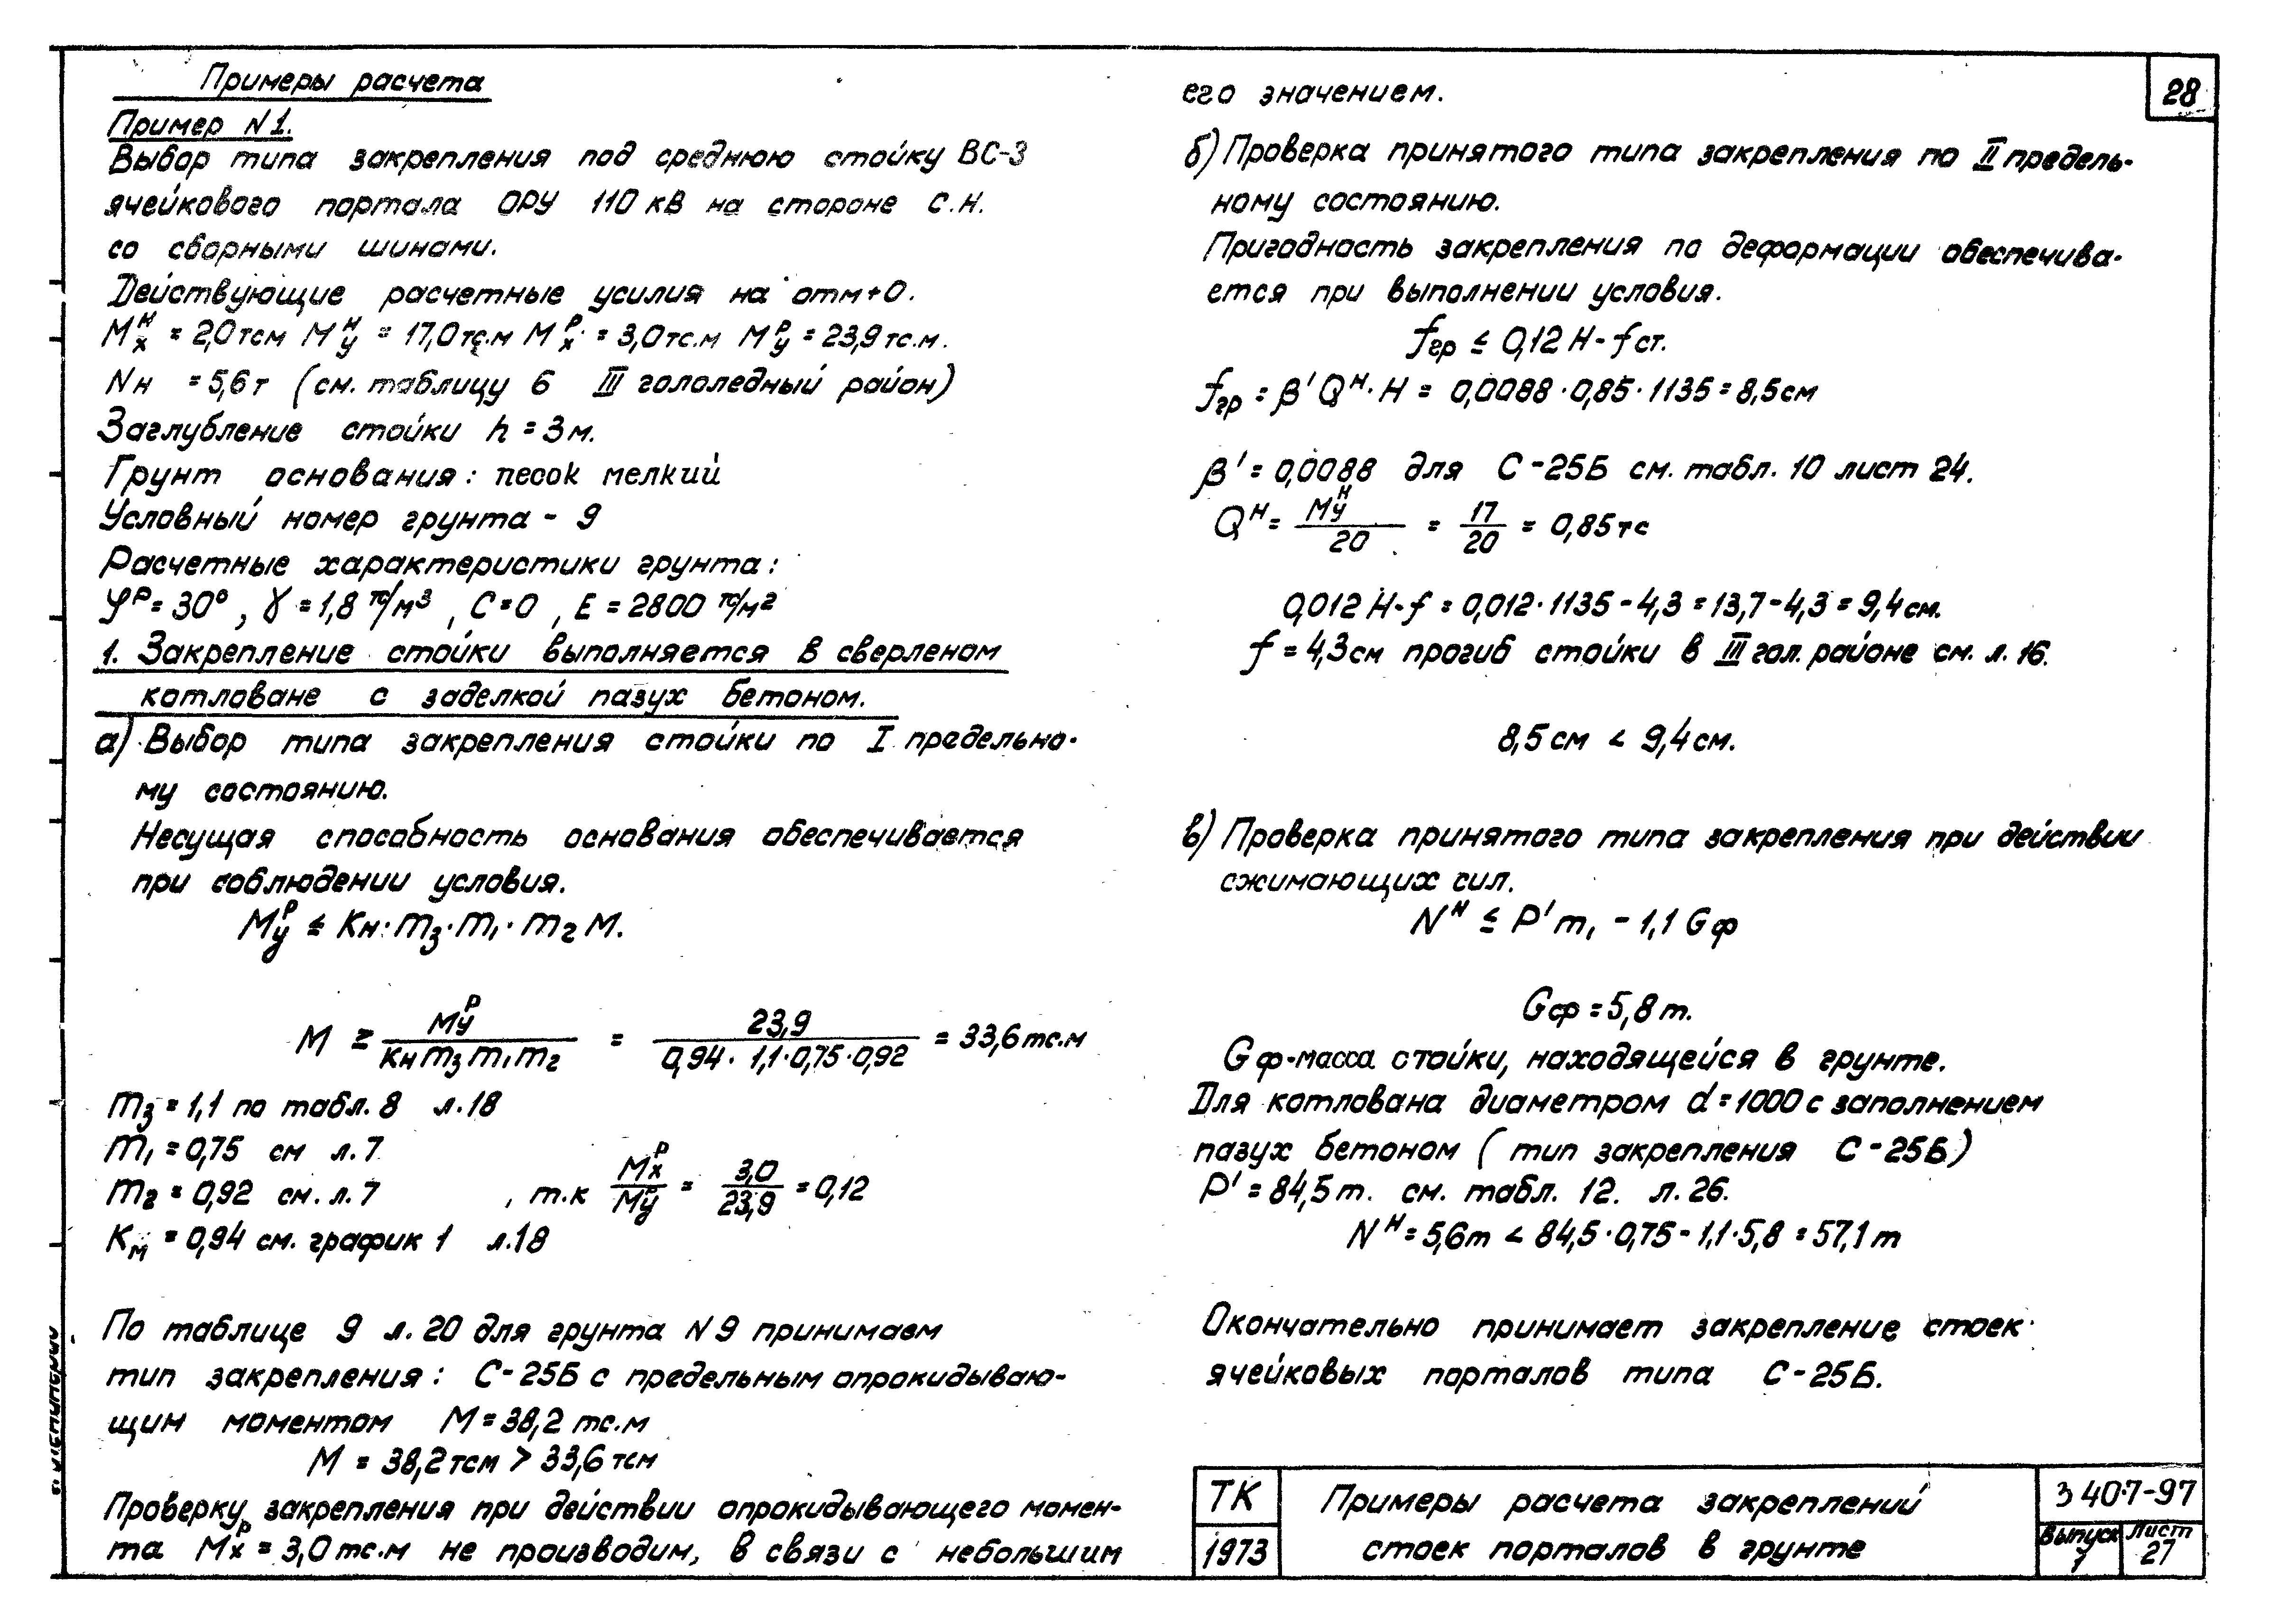 Примеры расчета
Пример N1.
Выбор типа закрепления под среднюю стойку ВС-3
ячейкового портала ОРУ 110 кВ на стороне с.н.
со сборными шинами.
Действующие расчетные усилия на отм+0.
Mₓᴴ = 2,0тсм Mᵧᴴ = 17,0тс.м Mₓᴾ = 3,0тс.м Mᵧᴾ = 23,9тс.м.
Nн = 5,6т (см. таблицу 6 III гололедный район)
Заглубление стойки h = 3м.
Грунт основания: песок мелкий
Условный номер грунта - 9
Расчетные характеристики грунта:
φᴾ = 30°, γ = 1,8 тс/м³, С=0, Е = 2800 тс/м²
1. Закрепление стойки выполняется в сверленом
котловане с заделкой пазух бетоном.
а) Выбор типа закрепления стойки по I предельно-
му состоянию.
Несущая способность основания обеспечивается
при соблюдении условия.
Mᵧᴾ ≤ Kн·m₃·m₁·m₂ M.
M ≥ Mᵧᴾ / Kн m₃ m₁ m₂ = 23,9 / 0,94·1,1·0,75·0,92 = 33,6тс.м
m₃ = 1,1 по табл. 8 л.18
m₁ = 0,75 см л.7
m₂ = 0,92 см. л.7 , т.к Mₓᴾ / Mᵧᴾ = 3,0 / 23,9 = 0,12
Kм = 0,94 см. график 1 л.18
По таблице 9 л. 20 для грунта N9 принимаем
тип закрепления: С-25Б с предельным опрокидываю-
щим моментом М = 38,2 тс.м
М = 38,2тсм > 33,6 тсм
Проверку закрепления при действии опрокидывающего момен-
та Mₓᴾ = 3,0тс.м не производим, в связи с небольшим
его значением.
28
б) Проверка принятого типа закрепления по II предель-
ному состоянию.
Пригодность закрепления по деформации обеспечива-
ется при выполнении условия.
fгр ≤ 0,12 Н - fст.
fгр = β' Qᴴ·H = 0,0088·0,85·1135 = 8,5см
β' = 0,0088 для С-25Б см. табл. 10 лист 24.
Qᴴ = Mᵧᴴ / 20 = 17 / 20 = 0,85тс
0,012 Н-f = 0,012·1135 - 4,3 = 13,7-4,3 = 9,4см.
f = 4,3см прогиб стойки в III гол. районе см. л. 16.
8,5см < 9,4см.
в) Проверка принятого типа закрепления при действии
сжимающих сил.
Nᴴ ≤ P' m₁ - 1,1 Gф
Gф = 5,8т.
Gф-масса стойки, находящейся в грунте.
Для котлована диаметром d = 1000 с заполнением
пазух бетоном (тип закрепления С-25Б)
P' = 84,5т. см. табл. 12. л. 26.
Nᴴ = 5,6т < 84,5·0,75 - 1,1·5,8 = 57,1т
Окончательно принимает закрепление стоек
ячейковых порталов типа С-25Б.
ТК
1973
Примеры расчета закреплений
стоек порталов в грунте
3 407-97
Выпуск 1
Лист 27